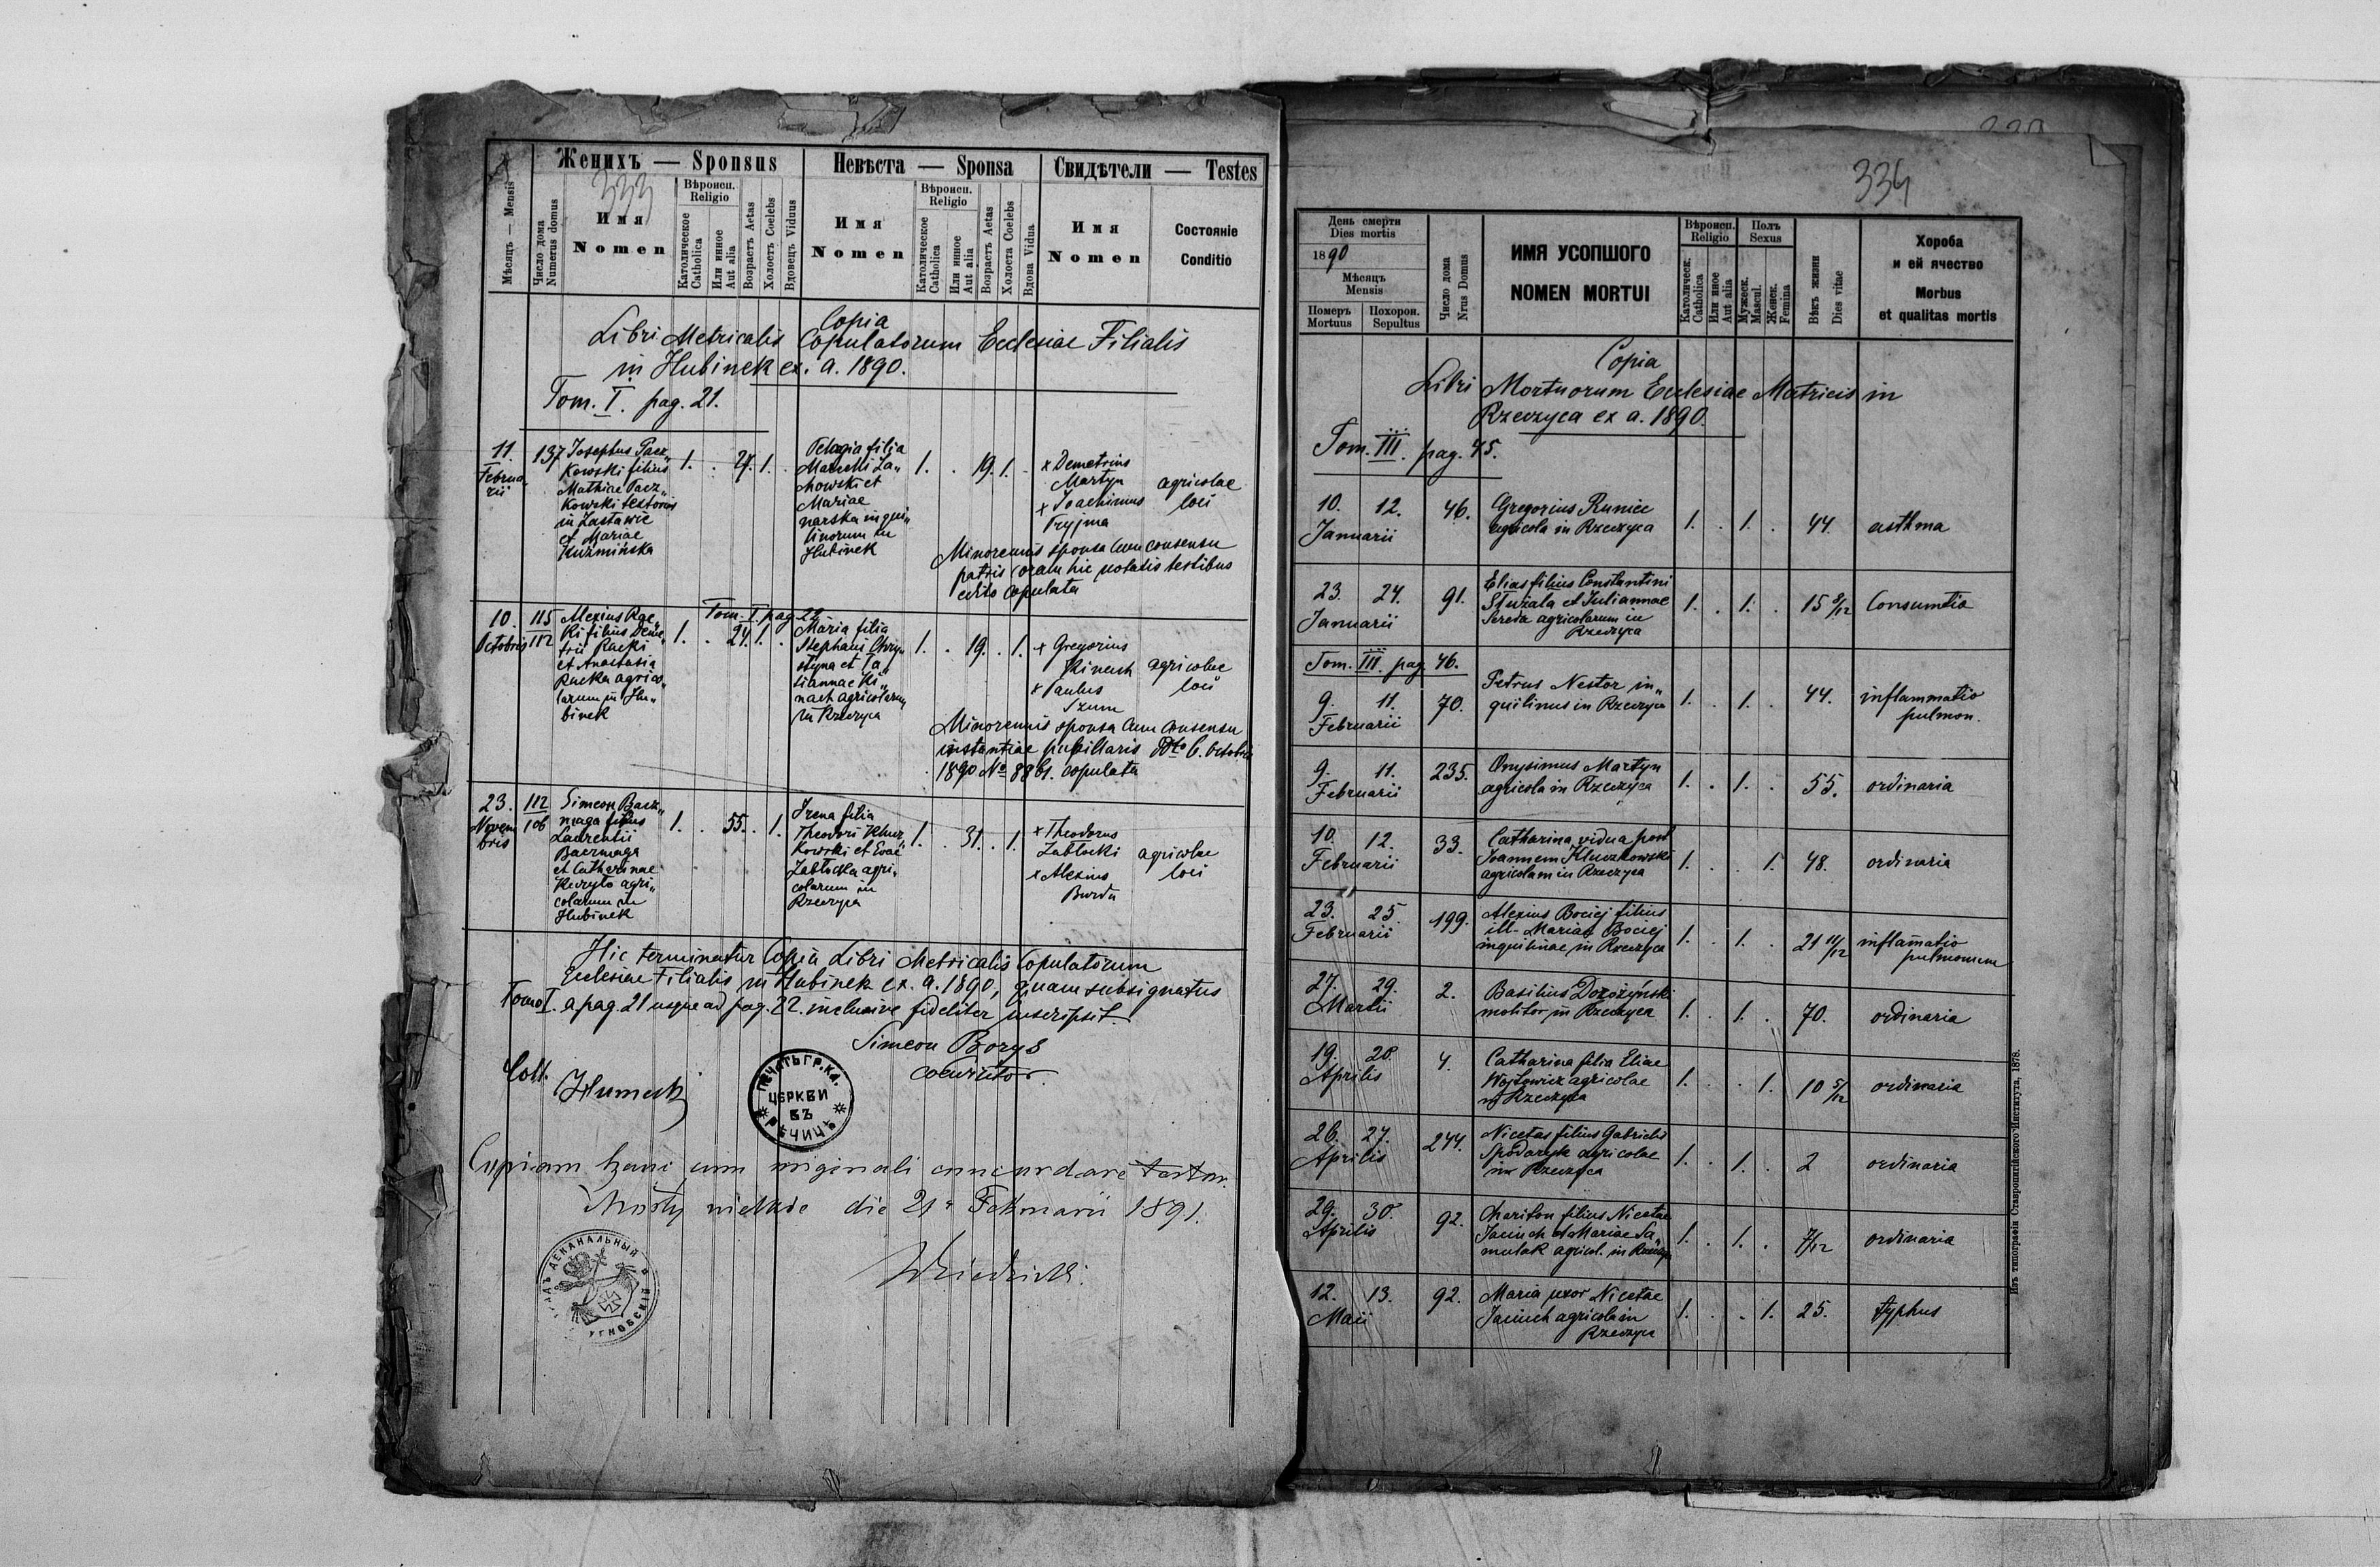 333
Женихъ — Sponsus
Невѣста — Sponsa
Свидѣтели — Testes
Мѣсяцъ — Mensis
Число дома
Numerus domus
Имя
Nomen
Вѣроисп.
Religio
Католическое
Catholica
Или инное
Aut alia
Возрастъ Aetas
Холостъ Coelebs
Вдовецъ Viduus
Имя
Nomen
Вѣроисп.
Religio
Католическое
Catholica
Или инное
Aut alia
Возрастъ Aetas
Холоста Coelebs
Вдова Vidua
Имя
Nomen
Состояніе
Conditio
Copia
Libri Metricalis Copulatorum Ecclesiae Filialis
in Hubinek ex. a. 1890.
Tom. I. pag. 21.
11.
Februa„
rii
137
Josephus Pacz„
kowski filius
Mathiae Pacz„
kowski textoris
in Zastawie
et Mariae
Kuźmińska
1. . 27. 1. .
Pelagia filia
Marcelli Za„
chowski et
Mariae
narska inqui„
linorum in
Hubinek
1. . 19. 1. .
x Demetrius
Martyn
x Joachimus
Tryjma
agricolae
loci
Minorennis sponsa cum consensu
patris coram hic notatis testibus
edito copulata
Tom. I. pag. 22.
10.
Octobris
115
112
Alexius Rac„
ki filius Deme„
trii Racki
et Anastasia
Rucka agrico„
larum in Hu„
binek
1. . 24. 1. .
Maria filia
Stephani Chry„
styna et Ta„
tiannae Ki„
nach agricolarum
in Rzeczyca
1. . 19. . 1.
x Gregorius
Kinach
x Paulus
Szum
agricolae
loci
Minorennis sponsa cum consensu
instantiae pupillaris ddto 6. Octobris
1890 No 8861. copulata
23.
Novem
bris
112
106
Simeon Bacz„
maga filius
Laurentii
Baczmaga
et Catharinae
agri„
colarum in
Hubinek
1. . 55. . 1.
Irena filia
Theodori Klucz„
kowski et Evae
Zabłocka agri„
colarum in
Rzeczyca
1. . 31. . 1.
x Theodorus
Zabłocki
x Alexius
Burda
agricolae
loci
Hic terminatur Copia Libri Metricalis Copulatorum
Ecclesiae Filialis in Hubinek ex. a. 1890, quam subsignatus
Tomo I. a pag. 21 usque ad pag. 22. inclusive fideliter inscripsit.
Simeon Borys
cooperator.
Coll.
ПЕЧАТЬ ГР. КА.
ЦЕРКВИ
ВЪ
РѢЧИЦѢ
Copiam hanc cum originali concordare testor.
Mosty wielkie die 21 Februarii 1891.
ДЕКАНАЛЬНЫЙ
УГНОВСКІЙ
334
День смерти
Dies mortis
1890
Мѣсяцъ
Mensis
Померъ
Mortuus
Похорон.
Sepultus
Число дома
Nrus Domus
ИМЯ УСОПШОГО
NOMEN MORTUI
Вѣроисп.
Religio
Католическ.
Catholica
Или иное
Aut alia
Полъ
Sexus
Мужеск.
Mascul.
Женск.
Femina
Вѣкъ жизни
Dies vitae
Хороба
и ей ячество
Morbus
et qualitas mortis
Copia
Libri Mortuorum Ecclesiae Matricis in
Rzeczyca ex a. 1890.
Tom. III. pag. 45.
10. 12.
Januarii
46.
Gregorius Runiec
agricola in Rzeczyca
1. . 1. . 44. asthma
23. 24.
Januarii
91.
Elias filius Constantini
Stużala et Juliannae
Sereda agricolarum in
Rzeczyca
1. . 1. . 15 8/12 Consumtio
Tom. III. pag. 46.
9. 11.
Februarii
70.
Petrus Nestor in„
quilinus in Rzeczyca
1. . 1. . 44. inflammatio
pulmon.
9. 11.
Februarii
235.
Onysimus Martyn
agricola in Rzeczyca
1. . 1. . 55. ordinaria
10. 12.
Februarii
33.
Catharina vidua post
Joannem Kluczkowski
agricolam in Rzeczyca
1. . . 1. 48. ordinaria
23. 25.
Februarii
199.
Alexius Bociej filius
ill. Mariae Bociej
inquilinae in Rzeczyca
1. . 1. . 21 11/12 inflamatio
pulmonum
27. 29.
Martii
2.
Basilius Dorożyński
molitor in Rzeczyca
1. . 1. . 70. ordinaria
19. 20.
Aprilis
4.
Catharina filia Eliae
Wojtowicz agricolae
in Rzeczyca
1. . . 1. 10 5/12 ordinaria
26. 27.
Aprilis
244.
Nicetas filius Gabrielis
Spodaryk agricolae
in Rzeczyca
1. . 1. . 2 ordinaria
29. 30.
Aprilis
92.
Chariton filius Nicetae
Jacinch et Mariae Sa„
mulak agricol. in Rzeczyca
1. . 1. . 7/12 ordinaria
12. 13.
Maii
92.
Maria uxor Nicetae
Jacinch agricola in
Rzeczyca
1. . . 1. 25. typhus
Изъ типографіи Ставропигійского Института, 1878.